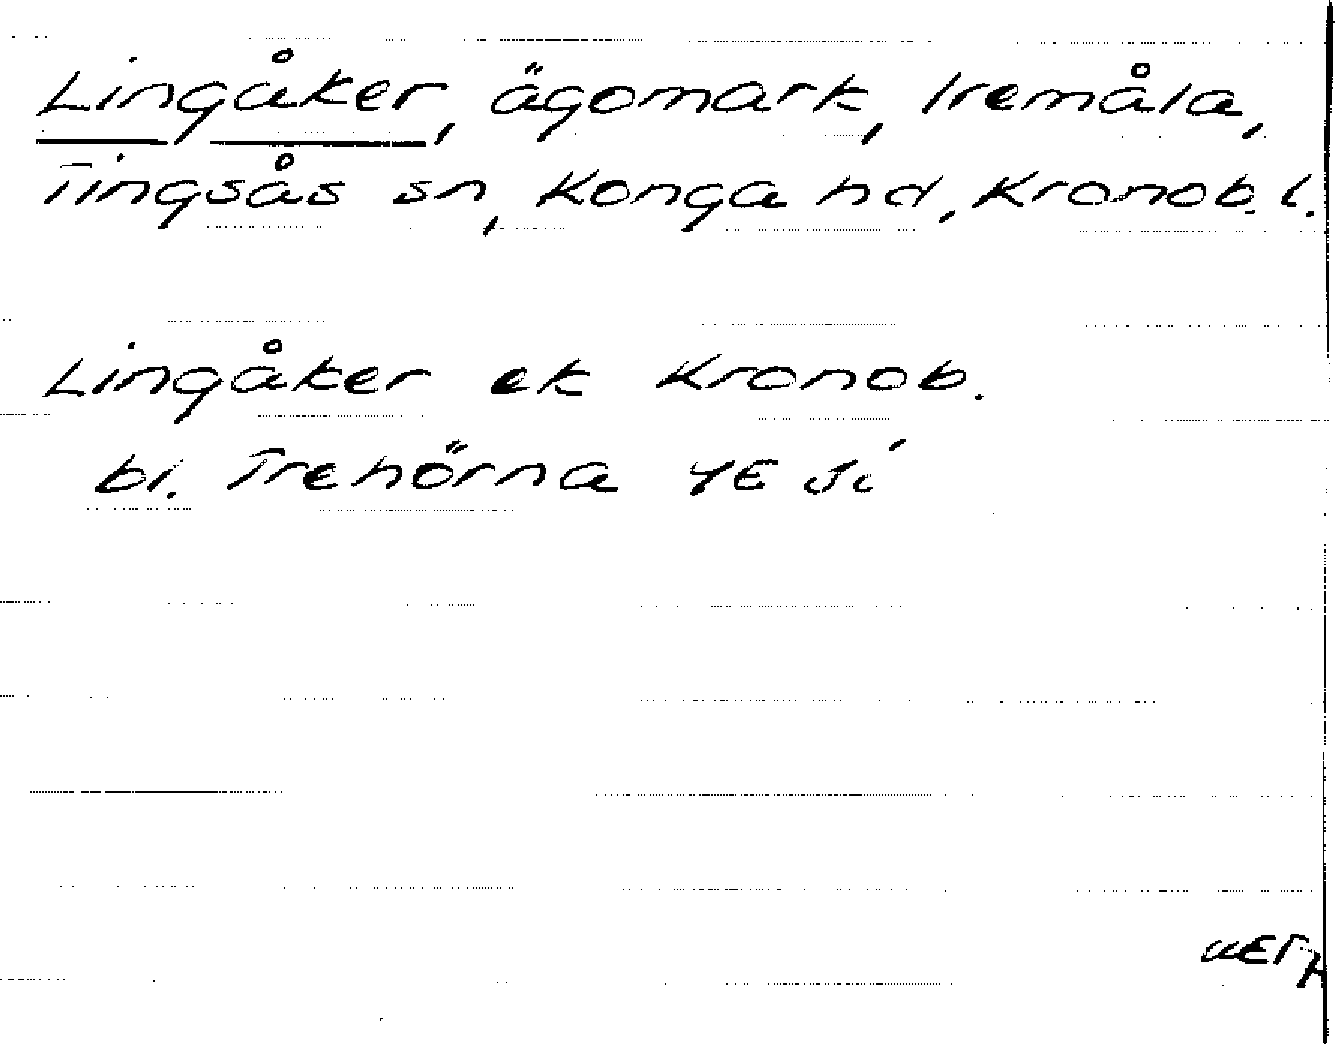 Lingåker, ägomark, Iremåla,
Tingsås sn, Konga hd, Kronob. l.
Lingåker ek Kronob.
bl. Trehörna 4E